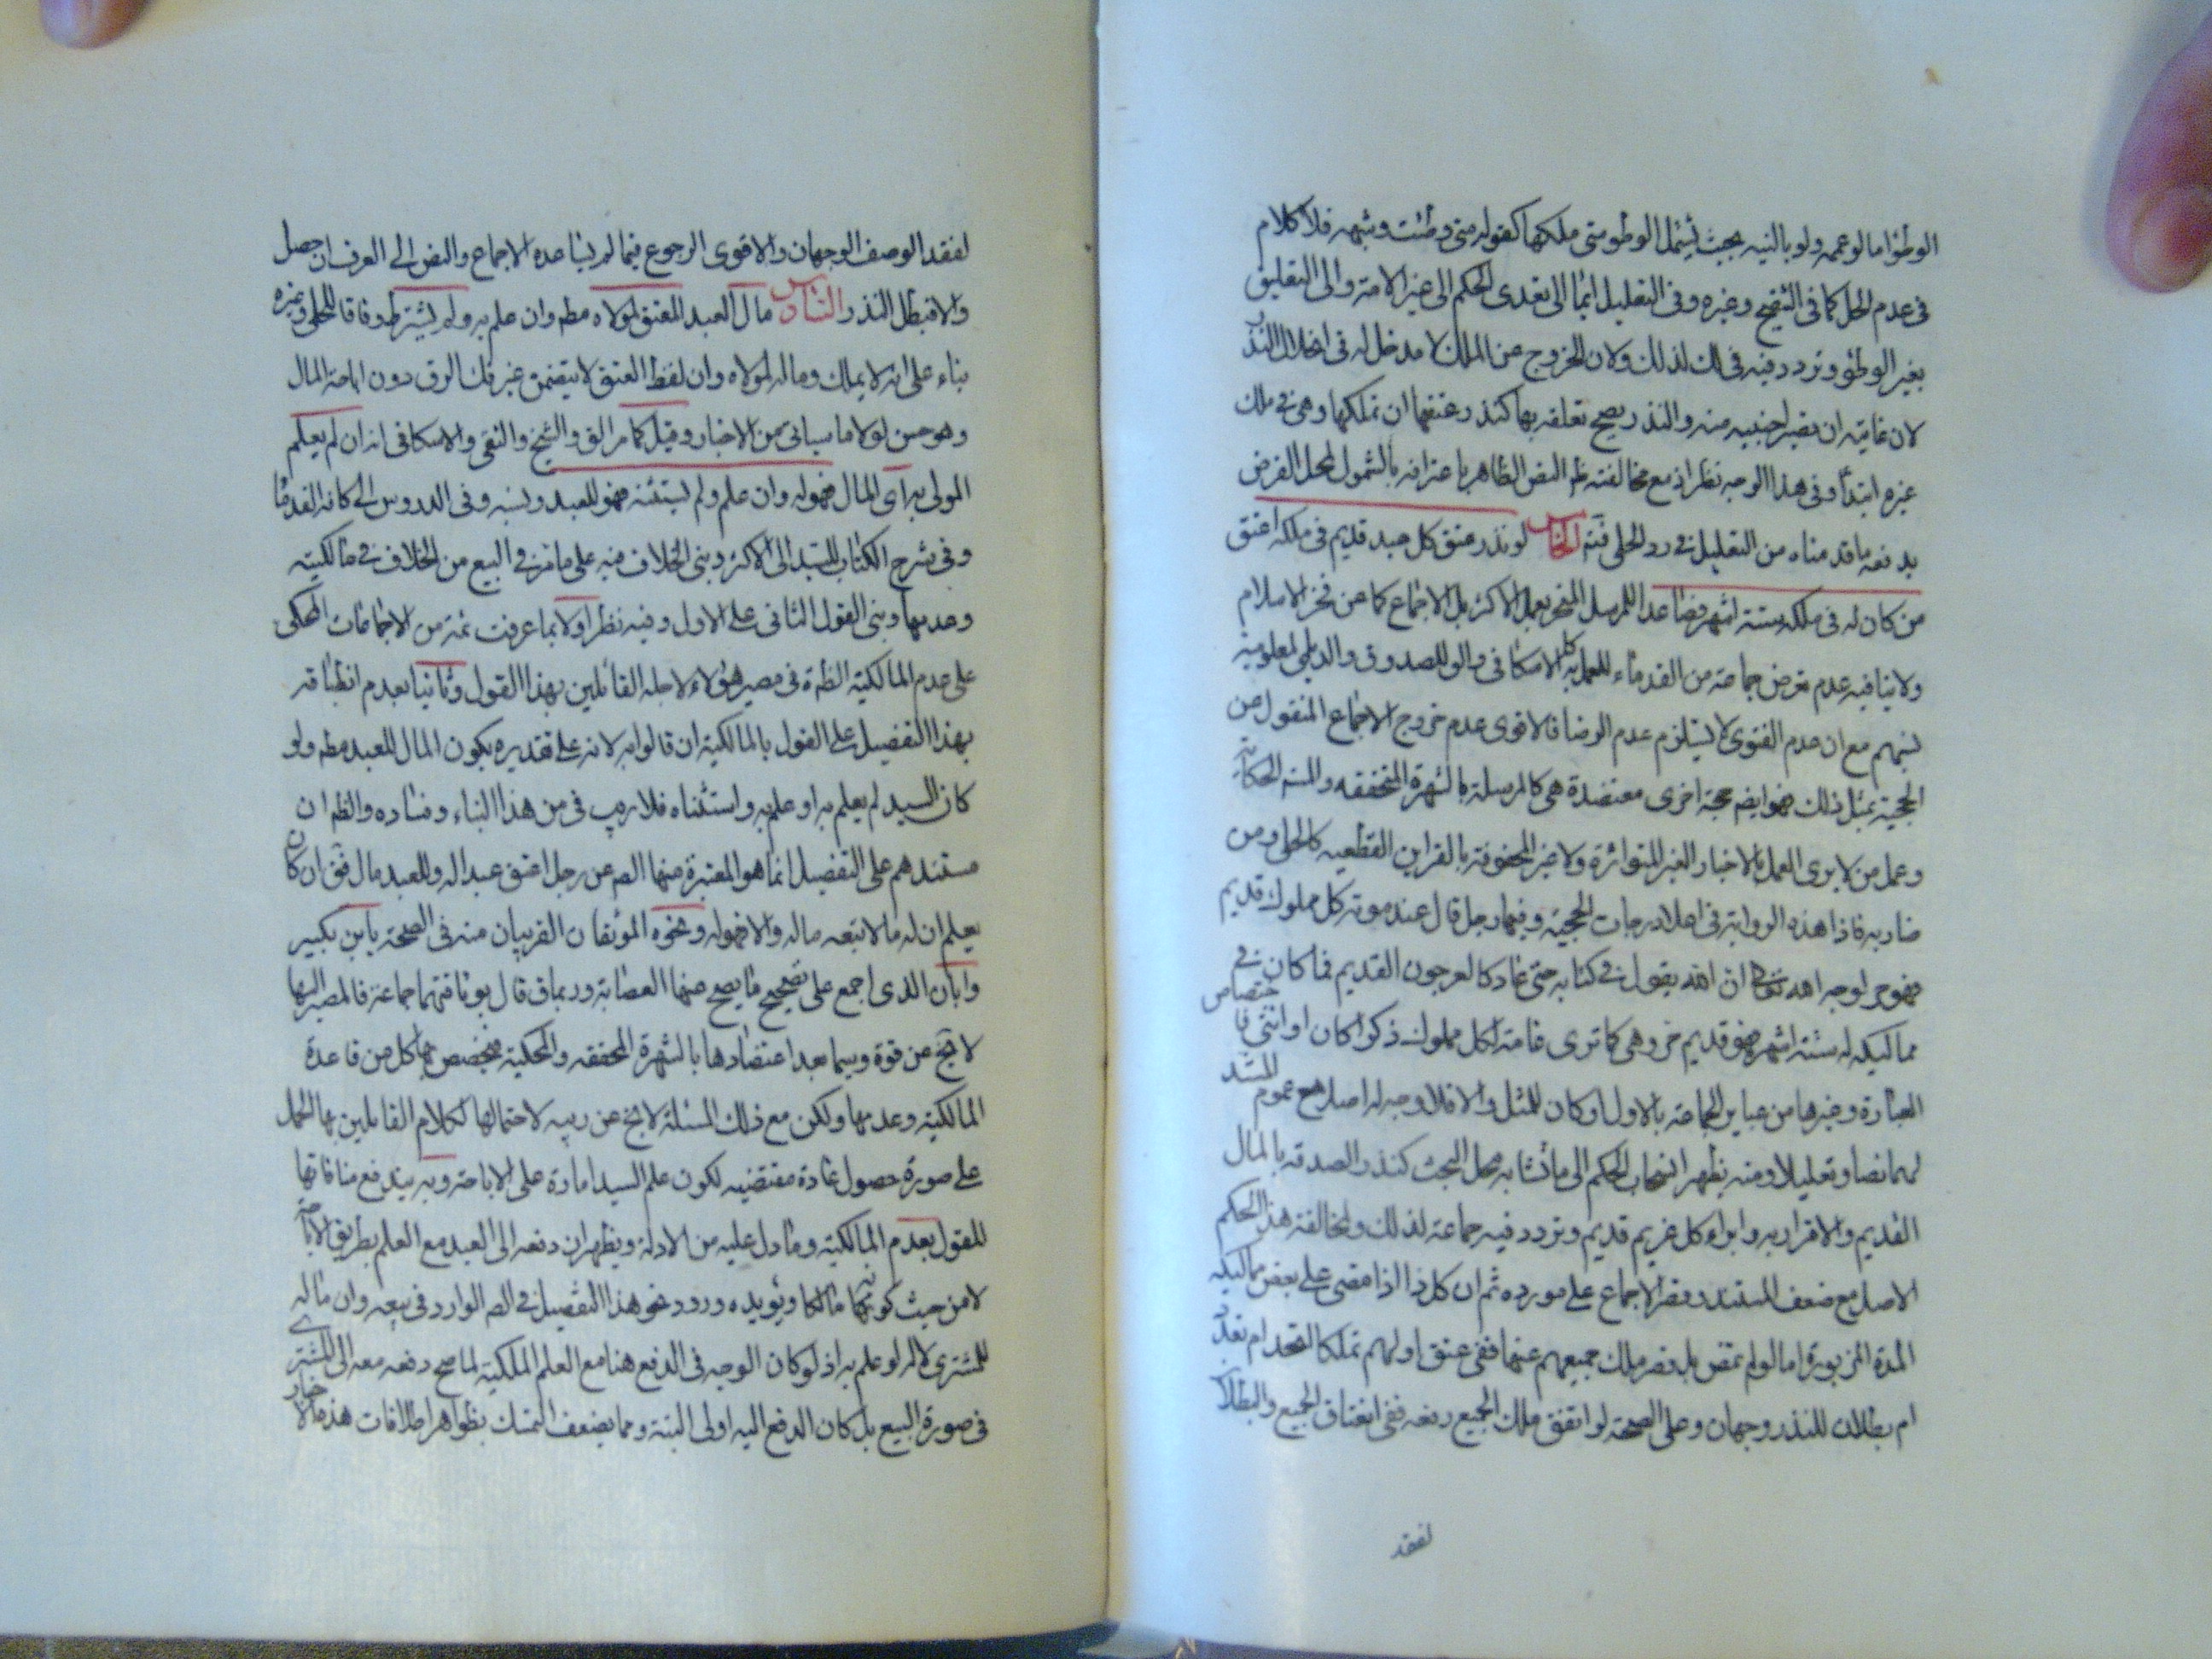 الوطؤ اما لو عممه ولو بالنيه بحيث يشمل الوطو متى ملكها كقوله متى وطئت وشبهه فلا كلام
فى عدم الحل كما فى التنقيح وغيره وفى التعليل ايماء الى تعدى الحكم الى غير الامة والى التعليق
بغير الوطؤ وتردد فيه فى لك لذلك ولان الخروج عن الملك لا مدخل له فى انحلال النذر
لان غايته ان يصير اجنبيه منه والنذر يصح تعلقه بها كنذر عتقها ان تملكها وهى فى ملك
غيره ابتداء وفى هذا الوجه نظر اذ مع مخالفته ظم النص الظاهر باعترافه بالشمول لمحل الفرض
يدفعه ما قدمناه من التعليل فى رد الحلى فتم الخامس لو نذر عتق كل عبد قديم فى ملكه اعتق
من كان له فى ملكه ستة اشهر فصاعدا للمرسل المنجبر بعمل الاكثر بل الاجماع كما عن فخر الاسلام
ولا ينافيه عدم تعرض جماعة من القدماء للعمل به كالاسكافى والصدوق والديلمى لمعلومية
نسبهم مع ان عدم الفتوى لا يستلزم عدم الرضا فالاقوى عدم خروج الاجماع المنقول من
الحجية بمثل ذلك فهو ايضم حجة اخرى معتضدة هى كالمرسلة بالشهرة المتحققه
وعمل من لا يرى العمل بالاخبار الغير المتواترة ولا غير المحفوفة بالقراين القطعيه كالحلى ومن
ضاربه فاذا هذه الرواية فى اعلا درجات الحجية وفيها رجل قال عند موته كل مملوك قديم
فهو حر لوجه الله تعالى ان الله يقول فى كتابه حتى عاد كالعرجون القديم فما كان فى
مماليكه له ستة اشهر فهو قديم حر وهى كما ترى عامة لكل مملوك ذكرا كان او انثى فاختصاص
العبارة وغيرها من عباير الجماعة بالاول ان كان للمثل والا فلا وجه له اصلا مع عموم المستند
لهما نصا وتعليلا ومنه يظهر انسحاب الحكم الى ما شابه محل البحث كنذر الصدقه بالمال
القديم والاقرار به وابراء كل غريم قديم وتردد فيه جماعة لذلك ولمخالفة هذا الحكم
الاصل مع ضعف المستند وقصر الاجماع على مورده ثم ان كل ذا اذا مضى على بعض مماليكه
المدة المزبورة اما لو لم تمض بل وقصر ملك جميعهم عنها ففى عتق اولهم تملكا اتحد ام تعدد
ام بطلان للنذر وجهان وعلى الصحة لو اتفق ملك الجميع دفعه ففى انعتاق الجميع والبطلان
لفقد
لفقد الوصف الوجهان والاقوى الرجوع فيما لم يساعده الاجماع والنص الى العرف ان حصل
والا فيبطل النذر السادس مال العبد المعتق لمولاه مطم وان علم به ولم يشترطه وفاقا للحلى وغيره
بناء على انه لا يملك وماله لمولاه وان لفظ العتق لا يتضمن غير فك الرق دون اباحة المال
وهو حسن لولا ما سيأتى من الاخبار وقيل كما مر الق والشيخ والتقى والاسكافى انه ان لم يعلم
المولى به اى المال فهو له وان علم ولم يستثنه فهو للعبد ونسبه فى الدروس الى كافة القدماء
وفى شرح الكتاب للسيد الى الاكثر وبنى الخلاف فيه على ما مر فى البيع من الخلاف فى مالكيته
وعدمها وبنى القول الثانى على الاول وفيه نظر اولا بما عرفت ثمة من الاجماعات المحكى
على عدم المالكية الظم فى مصير هؤلاء الاجله القائلين بهذا القول وثانيا بعدم انطباقه
بهذا التفصيل على القول بالمالكية ان قالوا به لانه على تقديره يكون المال للعبد مطم ولو
كان السيد لم يعلم به او علم به واستثناه فلا ريب فى من هذا البناء وفساده والظم ان
مستندهم على التفصيل انما هو المعتبرة منها الصم عن رجل اعتق عبدا له وللعبد مال فق ان كان
يعلم ان له مالا تبعه ماله والا فهو له ونحوه الموثقان القريبان منه فى الصحة بابن بكير
وابان الذى اجمع على تصحيح ما يصح عنهما العصابة وربما ق قال بوثاقتهما جماعة فالمصير اليها
لا يخ عن قوة وسيما بعد اعتضادها بالشهرة المحققه والمحكية فيخصص بها كل من قاعدة
المالكية وعدمها ولكن مع ذلك المسئلة لا يخ عن ريبه لاحتمالها لكلام القائلين بها الحمل
على صورة حصول عادة مقتضيه لكون علم السيد امارة على الاباحة وبه يندفع منافاتها
للقول بعدم المالكية وما دل عليه من الادلة ويظهر ان دفعه الى العبد مع العلم بطريق الاباحة
لا من حيث كونها مالكا ويؤيده ورود نحو هذا التفصيل فى الصم الوارد فى بيعه وان ماله
للمشترى لا له لو علم به اذ لو كان الوجه فى الدفع هنا مع العلم الملكية لما صح دفعه معه الى المشترى
فى صورة البيع بل كان الدفع اليه اولى البتة ومما يضعف التمسك بظواهر اطلاقات هذه الاخبار